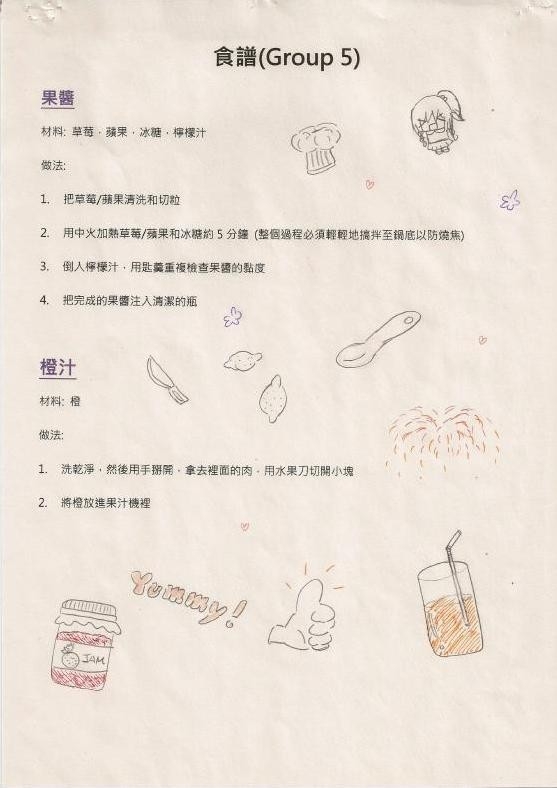 食譜(Group 5)
果醬
材料: 草莓，蘋果，冰糖，檸檬汁
做法:
1. 把草莓/蘋果清洗和切粒
2. 用中火加熱草莓/蘋果和冰糖約 5 分鐘 (整個過程必須輕輕地搞拌至鍋底以防燒焦)
3. 倒入檸檬汁，用匙羹重複檢查果醬的黏度
4. 把完成的果醬注入清潔的瓶
橙汁
材料: 橙
做法:
1. 洗乾淨，然後用手掰開，拿去裡面的肉，用水果刀切開小塊
2. 將橙放進果汁機裡
Yummy!
JAM